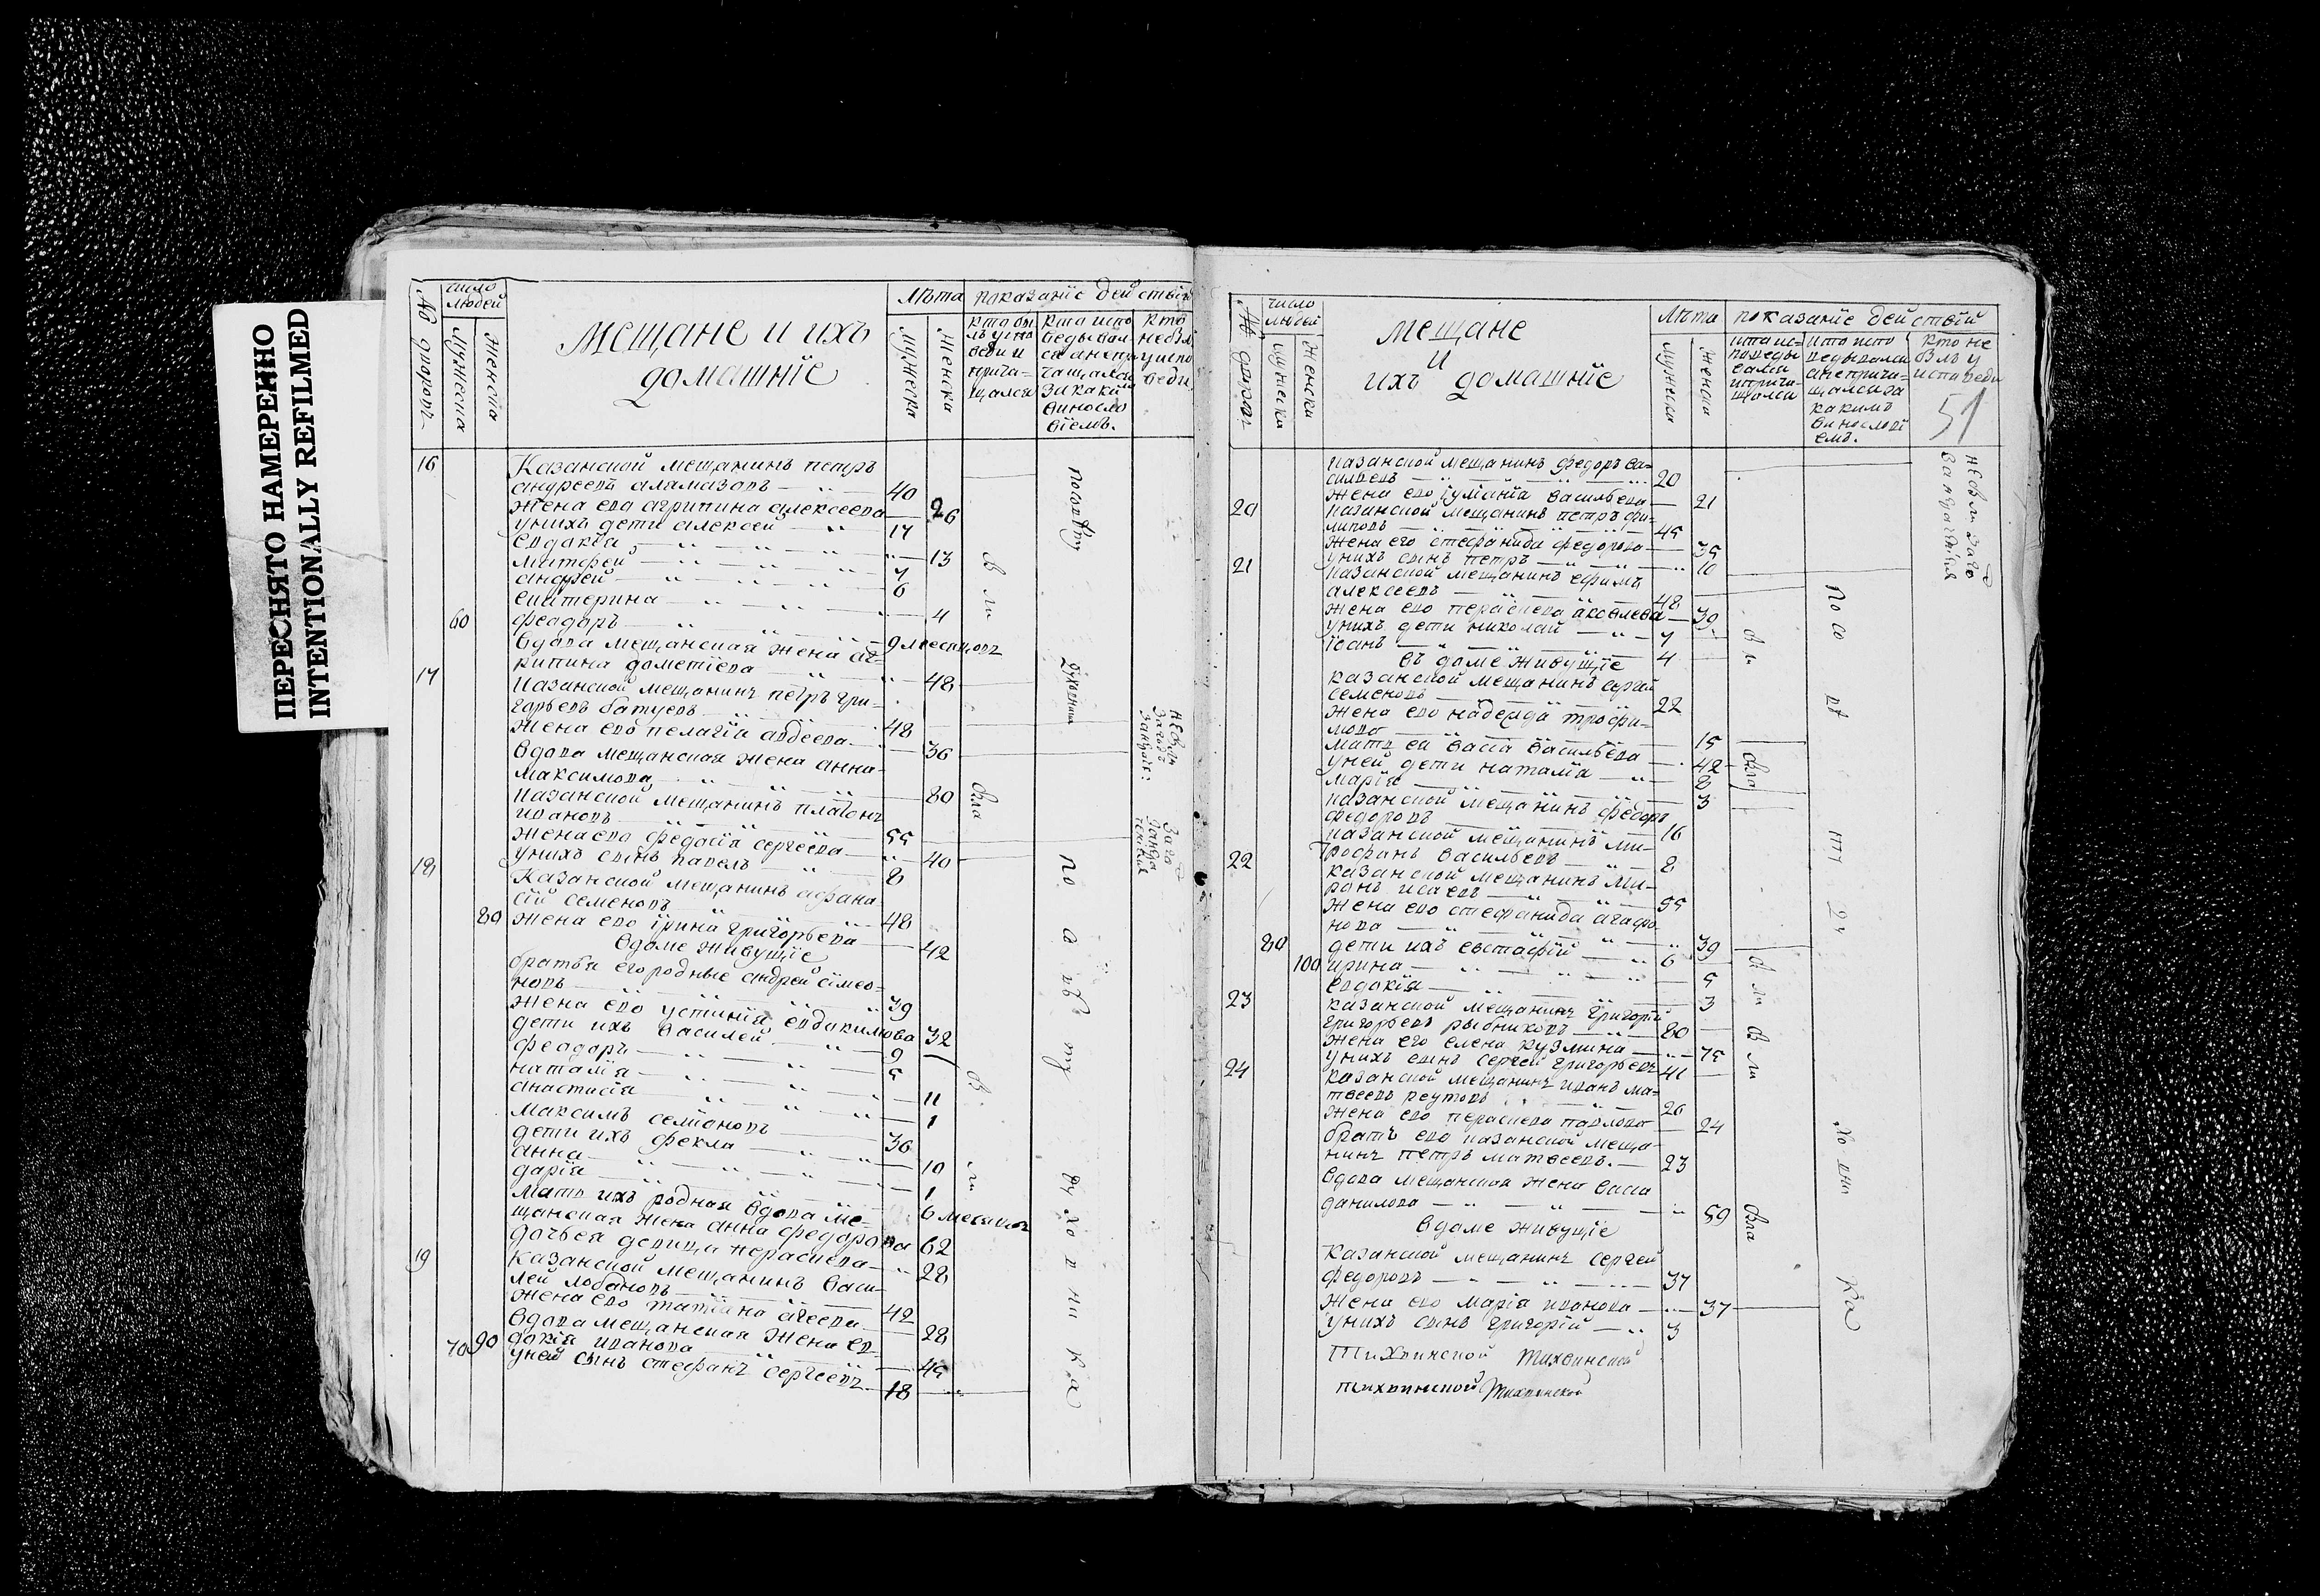 ПЕРЕСНЯТО НАМЕРЕННО
INTENTIONALLY REFILMED
№ дворовъ
число людей
Мужеска
Женска
Мещане и ихъ
домашнїе
Лѣта
Мужеска
Женска
показанїе действїй
16
Казанской мещанинъ петръ
андреевъ аламазовъ 40
Жена ево агрипина алексеева 26
унихъ дети алексей 17
Евдокїа 13
Матфей 7
андрей 6
екатерина 4
60 феодоръ 9 месяцовъ
вдова мещанская жена аг-
рипина дометїева 48
17 Казанской мещанинъ петръ гри-
горьевъ батуевъ 48
Жена ево пелагїа авдеева 36
вдова мещанская жена анна
максимова 80
Казанской мещанинъ платонъ
ивановъ 55
Жена ево федосїа сергеева 40
унихъ сынъ павелъ 8
18 Казанской мещанинъ афана
сїй семеновъ 48
80 Жена ево їрина григорьева 42
вдоме живущїе
братья его родные андрей сїмео-
новъ 39
Жена ево устинїя евдокимова 32
дети ихъ василей 9
феодоръ 5
наталїа 11
анастасїа 1
Максимъ семїоновъ 36
дети ихъ фекла 10
анна 1
дарїа 6 месяцовъ
мать ихъ родная вдова ме-
щанская жена анна федорова 62
дочь ея девица параскева 28
19 Казанской мещанинъ васи-
лей лобановъ 42
Жена ево татїана агеева 28
вдова мещанская жена ев-
70 90 докїя иванова 45
уней сынъ стефанъ сергеевъ 18
№ дворовъ
число людей
мужеска
Женски
мещане
и
ихъ домашнїе
Лѣта
мужеска
женска
показанїе действїй
кто не
былъ у
исповеди
51
Казанской мещанинъ федоръ ва-
сильевъ 20
Жена ево їулїанїа васильева 21
20 Казанской мещанинъ петръ фи-
липовъ 45
Жена его стефанида федорова 35
унихъ сынъ петръ 10
21 Казанской мещанинъ ефимъ
алексеевъ 48
Жена ево параскева яковлева 39
унихъ дети николай 7
їоанъ 4
въ доме живущїе
казанской мещанинъ сергей
семеновъ 22
Жена ево надежда трофи-
мова 15
мать ея васса васильева 42
уней дети наталїа 8
марїя 3
Казанской мещанинъ федоръ
федоровъ 16
Казанской мещанинъ ми-
трофанъ васильевъ 8
22 Казанской мещанинъ ми-
ронъ исаевъ 55
Жена ево стефанида агафо
нова 39
80 дети ихъ евстафїй 6
100 ирина 5
евдокїя 3
23 казанской мещанинъ григорїй
григорьевъ рыбниковъ 80
Жена его елена кузмина 75
унихъ сынъ сергей григорьевъ 41
24 казанской мещанинъ иванъ ма-
твеевъ реутовъ 26
Жена ево параскева павлова 24
братъ ево казанской меща-
нинъ петръ матвеевъ 23
вдова мещанская жена васса
данилова 59
вдоме живущїе
Казанской мещанинъ сергей
федоровъ 37
Жена ево марїя иванова 37
унихъ сынъ григорїй 3
Тихвинской Тихвинской
тихвинской Тихвинской